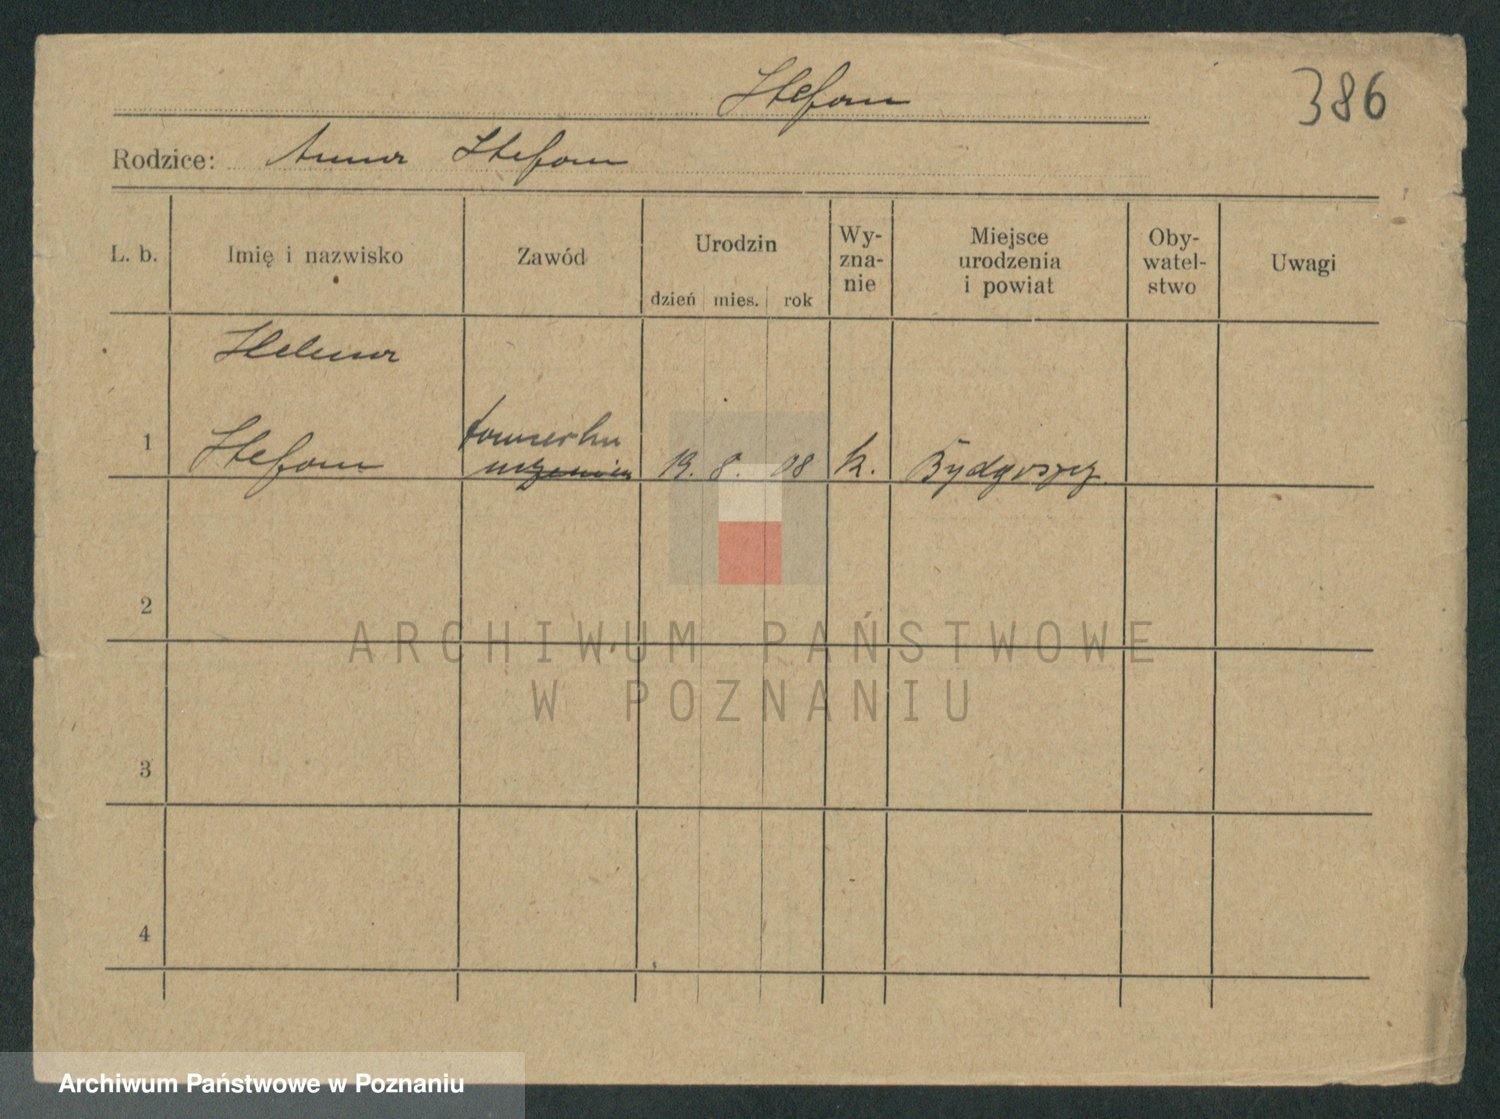 Stefan
386
Rodzice: Anna Stefan
L. b.
Imię i nazwisko
Zawód
Urodzin
dzień mies. rok
Wy-
zna-
nie
Miejsce
urodzenia
i powiat
Oby-
watel-
stwo
Uwagi
Helena
1 Stefan
19. 8. 08 k. Bydgoszcz
2
3
4
ARCHIWUM PAŃSTWOWE
W POZNANIU
Archiwum Państwowe w Poznaniu